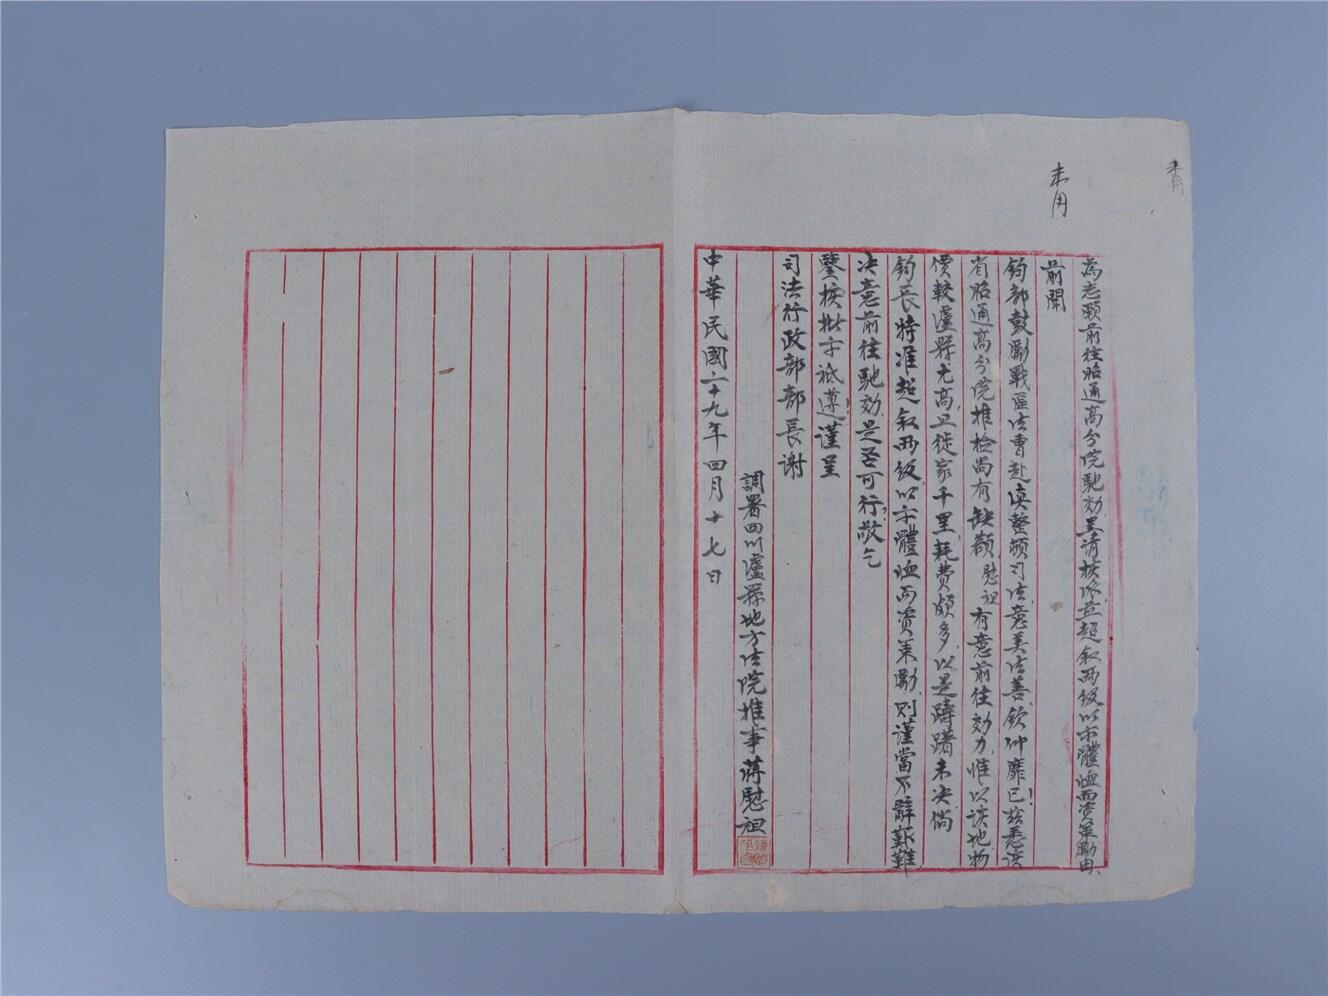 未用
未用
為志願前往昭通高分院馳効呈請核派並超敘兩級以示體恤而資策勵由
前聞
鈞部鼓勵戰區法曹赴滇整頓司法意美法善欽仰靡已茲悉該
省昭通高分院推檢尚有缺額慰祖有意前往効力惟以該地物
價較瀘縣尤高且徙家千里耗費頗多以是躊躇未決倘
鈞長特准超敘兩級以示體恤而資策勵則謹當不辭艱難
決意前往馳効是否可行敬乞
鑒核批示祗遵謹呈
司法行政部部長謝
調署四川瀘縣地方法院推事蔣慰祖
中華民國二十九年四月十七日